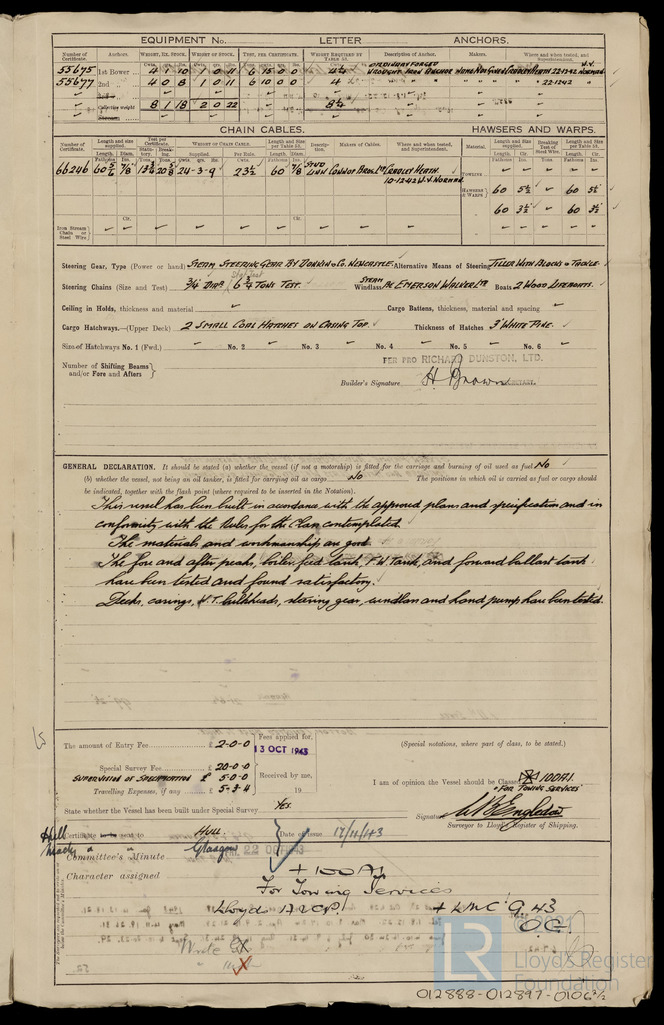 EQUIPMENT No. LETTER ANCHORS.
Number of Certificate. Anchors. WEIGHT, EX. STOCK. WEIGHT OF STOCK. TEST, PER CERTIFICATE. WEIGHT REQUIRED BY TABLE 53. Description of Anchor. Makers. Where and when tested, and Superintendent.
55675 1st Bower 4 1 10 1 0 11 6 15 0 0 4¼ ORDINARY FORGED WROUGHT IRON ANCHOR CRADLEY HEATH 22-12-42 W.Y. NORMAN
55677 2nd " 4 0 8 1 0 11 6 10 0 0 4 " " " " 22-12-42 "
Collective weight 8 1 18 2 0 22 8¼
CHAIN CABLES. HAWSERS AND WARPS.
Number of Certificate. Length and size supplied. Test per Certificate. WEIGHT OF CHAIN CABLE. Length and Size per Table 53. Description. Makers of Cables. Where and when tested, and Superintendent. Material. Length and Size supplied. Breaking Test of Steel Wire. Length and Size per Table 53.
66246 60 7/8 24-3-9 23½ 60 7/8 STUD LINK CRADLEY HEATH 10-12-42 W.Y. NORMAN
TOWLINE
HAWSERS & WARPS 60 5½ 60 5½
60 3½ 60 3½
Iron Stream Chain or Steel Wire
Steering Gear, Type (Power or hand) STEAM STEERING GEAR BY DONKIN & CO. NEWCASTLE. Alternative Means of Steering TILLER WITH BLOCKS & TACKLE.
Steering Chains (Size and Test) ¾" DIAR 6¾ TONS TEST. STEAM Windlass EMERSON WALKER LTD Boats 2 WOOD LIFEBOATS.
Ceiling in Holds, thickness and material Cargo Battens, thickness, material and spacing
Cargo Hatchways.—(Upper Deck) 2 SMALL COAL HATCHES ON CASING TOP. Thickness of Hatches 3" WHITE PINE.
Size of Hatchways No. 1 (Fwd.) No. 2 No. 3 No. 4 No. 5 No. 6
Number of Shifting Beams and/or Fore and Afters
PER PRO RICHARD DUNSTON, LTD.
Builder's Signature H. Brown SECRETARY.
GENERAL DECLARATION. It should be stated (a) whether the vessel (if not a motorship) is fitted for the carriage and burning of oil used as fuel No
(b) whether the vessel, not being an oil tanker, is fitted for carrying oil as cargo No The positions in which oil is carried as fuel or cargo should
be indicated, together with the flash point (where required to be inserted in the Notation).
This vessel has been built in accordance with the approved plans and specification and in
conformity with the Rules for the Class contemplated.
The materials and workmanship are good.
The fore and after peaks, boiler feed tank, F.W. Tank, and forward ballast tank
have been tested and found satisfactory.
Decks, casings, W.T. bulkheads, steering gear, windlass and hand pump have been tested.
The amount of Entry Fee £ 2-0-0 Fees applied for, 13 OCT 1943 (Special notations, where part of class, to be stated.)
Special Survey Fee £ 20-0-0
SUPERVISION OF SPECIFICATION £ 5-0-0 Received by me,
Travelling Expenses, if any £ 5-3-4 19
I am of opinion the Vessel should be Classed 100A1
"FOR TOWING SERVICES"
State whether the Vessel has been built under Special Survey Yes.
Signature
Surveyor to Lloyd's Register of Shipping.
Hull Certificate to be sent to HULL. Date of issue 17/11/43
Machy " " Glasgow 22 OCT 1943
Committee's Minute
Character assigned + 100A1
For Towing Services
Lloyds A&CP. + LMC 9.43
O.G.
Write
© 2021
LR
Lloyd's Register
Foundation
012888-012897-0106 2/2